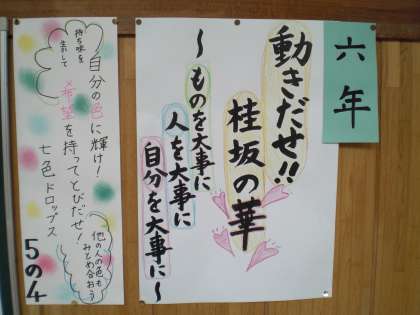 六年
動きだせ!!
桂坂の華
～ものを大事に
人を大事に
自分を大事に～
持ち味を
生かして
自分の色に輝け!
希望を持ってとびだせ!
七色ドロップス
他の人の色も
みとめ合おう
5の4